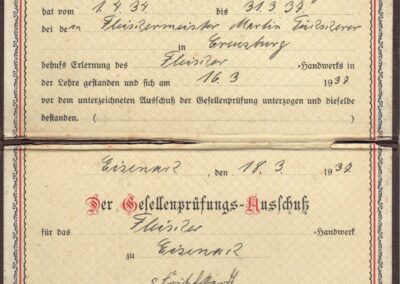 hat vom 1.4.34 bis 31.3.37
bei dem Fleischermeister Martin
in Creuzburg
behufs Erlernung des Fleischer-Handwerks in
der Lehre gestanden und sich am 16.3 1937.
vor dem unterzeichneten Ausschuß der Gesellenprüfung unterzogen und dieselbe
bestanden. ( )
Eisenach, den 18.3. 1937.
Der Gesellenprüfungs-Ausschuß
für das Fleischer-Handwerk
zu Eisenach